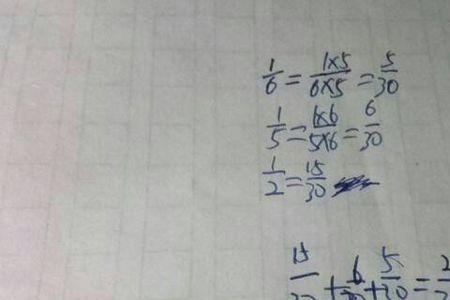 1/6 = 1×5/6×5 = 5/30
1/5 = 1×6/5×6 = 6/30
1/2 = 15/30
15/ + 6/30 + 5/30 = 2/